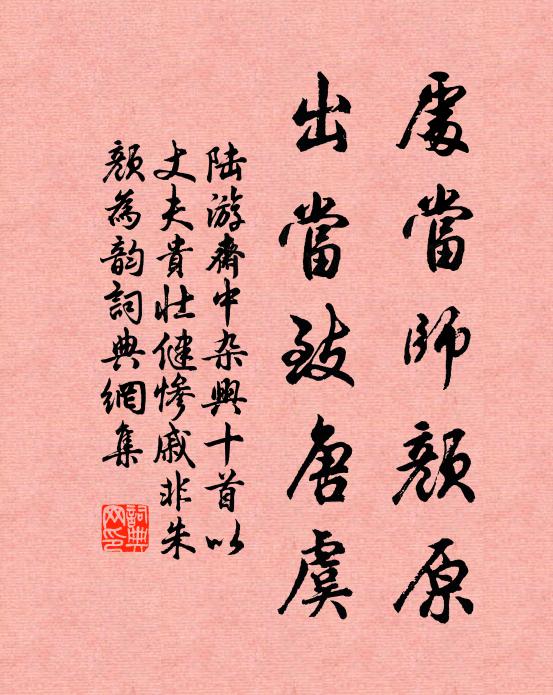 處當師顏原
出當致唐虞
陸游齋中杂興十首以
丈夫貴壯健慘戚非朱
顏為韵詞典網集
詞典
网印